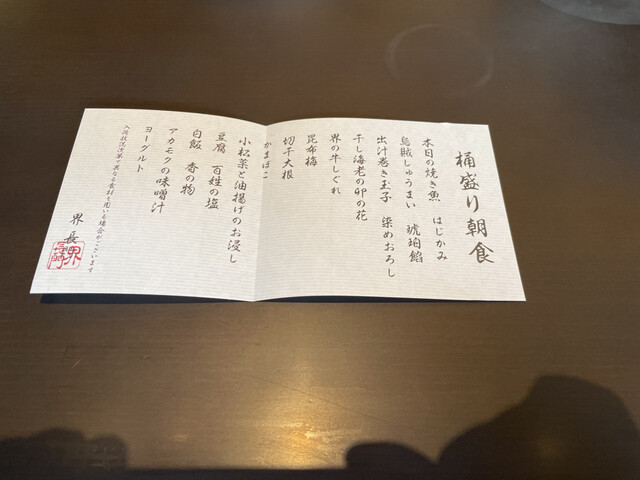 桶盛り朝食
本日の焼き魚　はじかみ
烏賊しゅうまい　琥珀餡
出汁巻き玉子　染めおろし
干し海老の卯の花
界の牛しぐれ
昆布梅
切干大根
かまぼこ
小松菜と油揚げのお浸し
豆腐　百姓の塩
白飯　香の物
アカモクの味噌汁
ヨーグルト
入荷状況次第で異なる食材を用いる場合がございます
界　長門